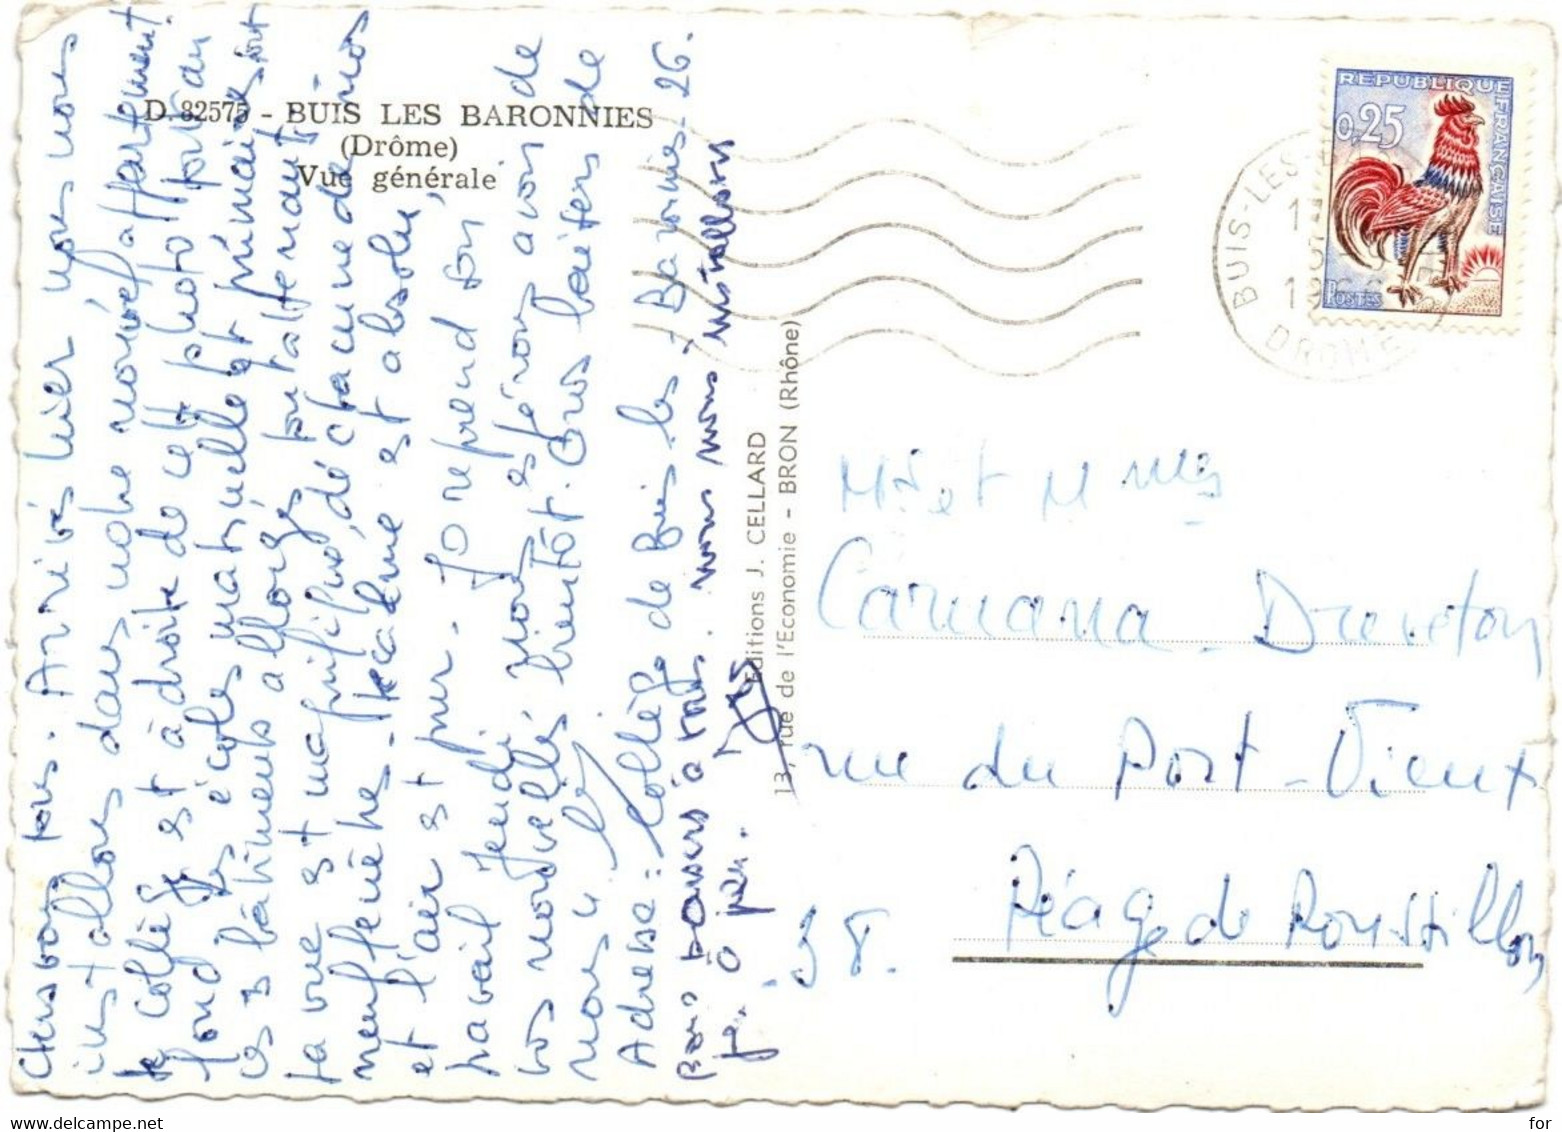 D. 82575 - BUIS LES BARONNIES
(Drôme)
Vue générale
Chers vous tous. Arrivés hier nous nous
installons dans notre nouvel appartement.
Le collège est à droite de cette photo tout au
fond. Les écoles maternelle et primaire sont
ces bâtiments allongés
La vue est magnifique, de chacune de nos
neuf fenêtres. Le calme est absolu,
et l'air est pur. Jo reprend son
travail Jeudi. Nous espérons avoir de
vos nouvelles bientôt. Gros baisers de
nous 4
Adresse : Collège de Buis-les-Baronnies-26.
Bons baisers à tous. nous nous installons
peu à peu.
Editions J. CELLARD
13, rue de l'Economie - BRON (Rhône)
REPUBLIQUE FRANÇAISE
0,25
POSTES
BUIS-LES-B
DROME
Mr et Mmes
Caruana-Dreveton
rue du Port-Vieux
Péage de Roussillon
-38.
delcampe.net
for